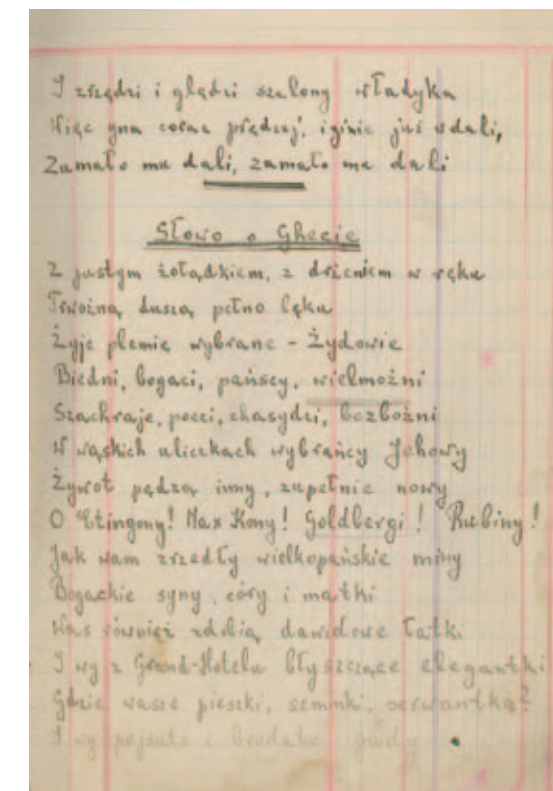 I zrzędzi i ględzi szalony władyka
Więc gna coraz prędzej, i ginie już w dali,
Zamało mu dali, zamało mu dali
Słowo o Ghecie
Z pustym żołądkiem, z drżeniem w ręku
Trwożną duszą pełno lęku
Żyje plemię wybrane - Żydowie
Biedni, bogaci, pańscy, wielmożni
Szachraje, poeci, chasydzi, bezbożni
W wąskich uliczkach wybrańcy Jehowy
Żywot pędzą inny, zupełnie nowy
O Etingony! Max Kony! Goldbergi! Rubiny!
Jak wam zrzedły wielkopańskie miny
Bogackie syny, córy i matki
Was również zdobią dawidowe łatki
I wy z Grand-Hotelu błyszczące elegantki
Gdzie wasze pieski, szminki,
I wy pejsate i brodate